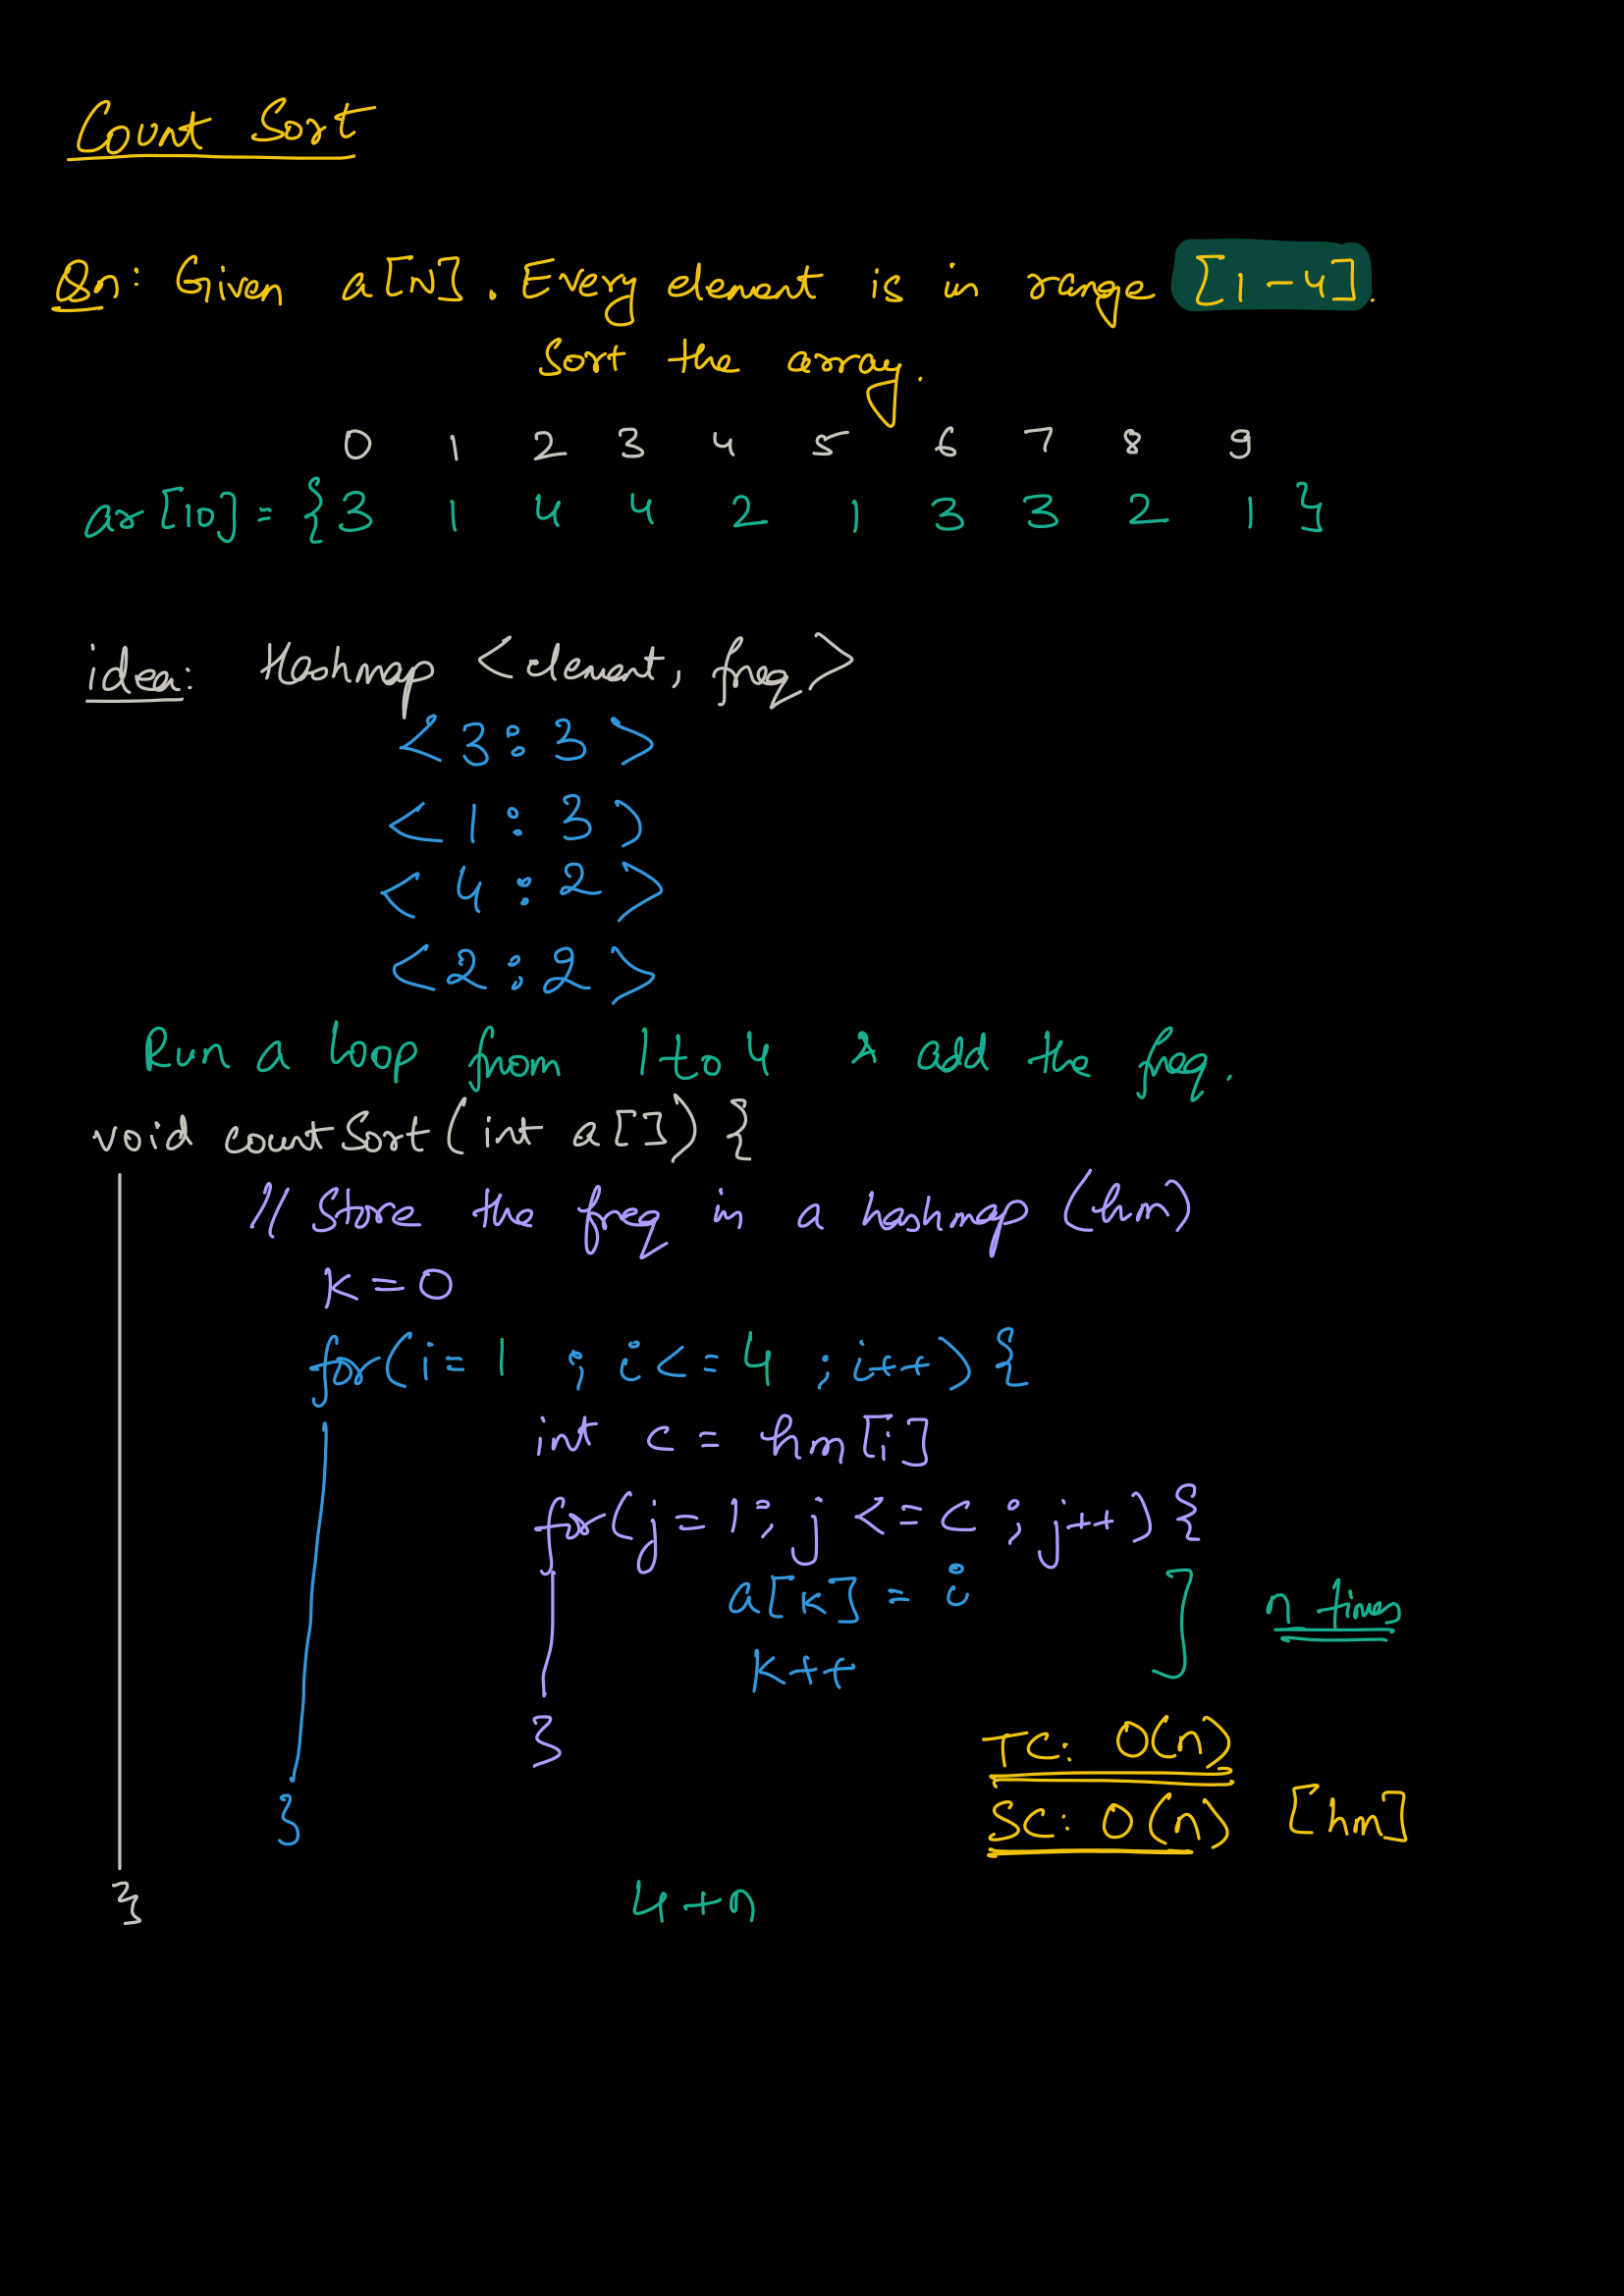 Count Sort
Qn: Given a[N]. Every element is in range [1-4].
Sort the array.
0 1 2 3 4 5 6 7 8 9
ar[10] = {3 1 4 4 2 1 3 3 2 1}
idea: Hashmap <element, freq>
<3:3>
<1:3)
<4:2>
<2:2>
Run a loop from 1 to 4 & add the freq.
void countSort(int a[]) {
// Store the freq in a hashmap (hm)
k = 0
for(i = 1 ; i <= 4 ; i++) {
int c = hm[i]
for(j = 1; j <= c ; j++) {
a[k] = i
] n times
k++
}
TC: O(n)
SC: O(n) [hm]
}
}
4+n